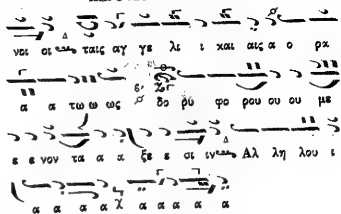 νοι οι ταις αγ γε λι ι και αις α ο ρα
α α τω ω ως δο ρυ φο ρου ου ου με
ε ε νον τα α α ξε ε σι ιν Αλ λη λου ι
α α α α χ α α α α α